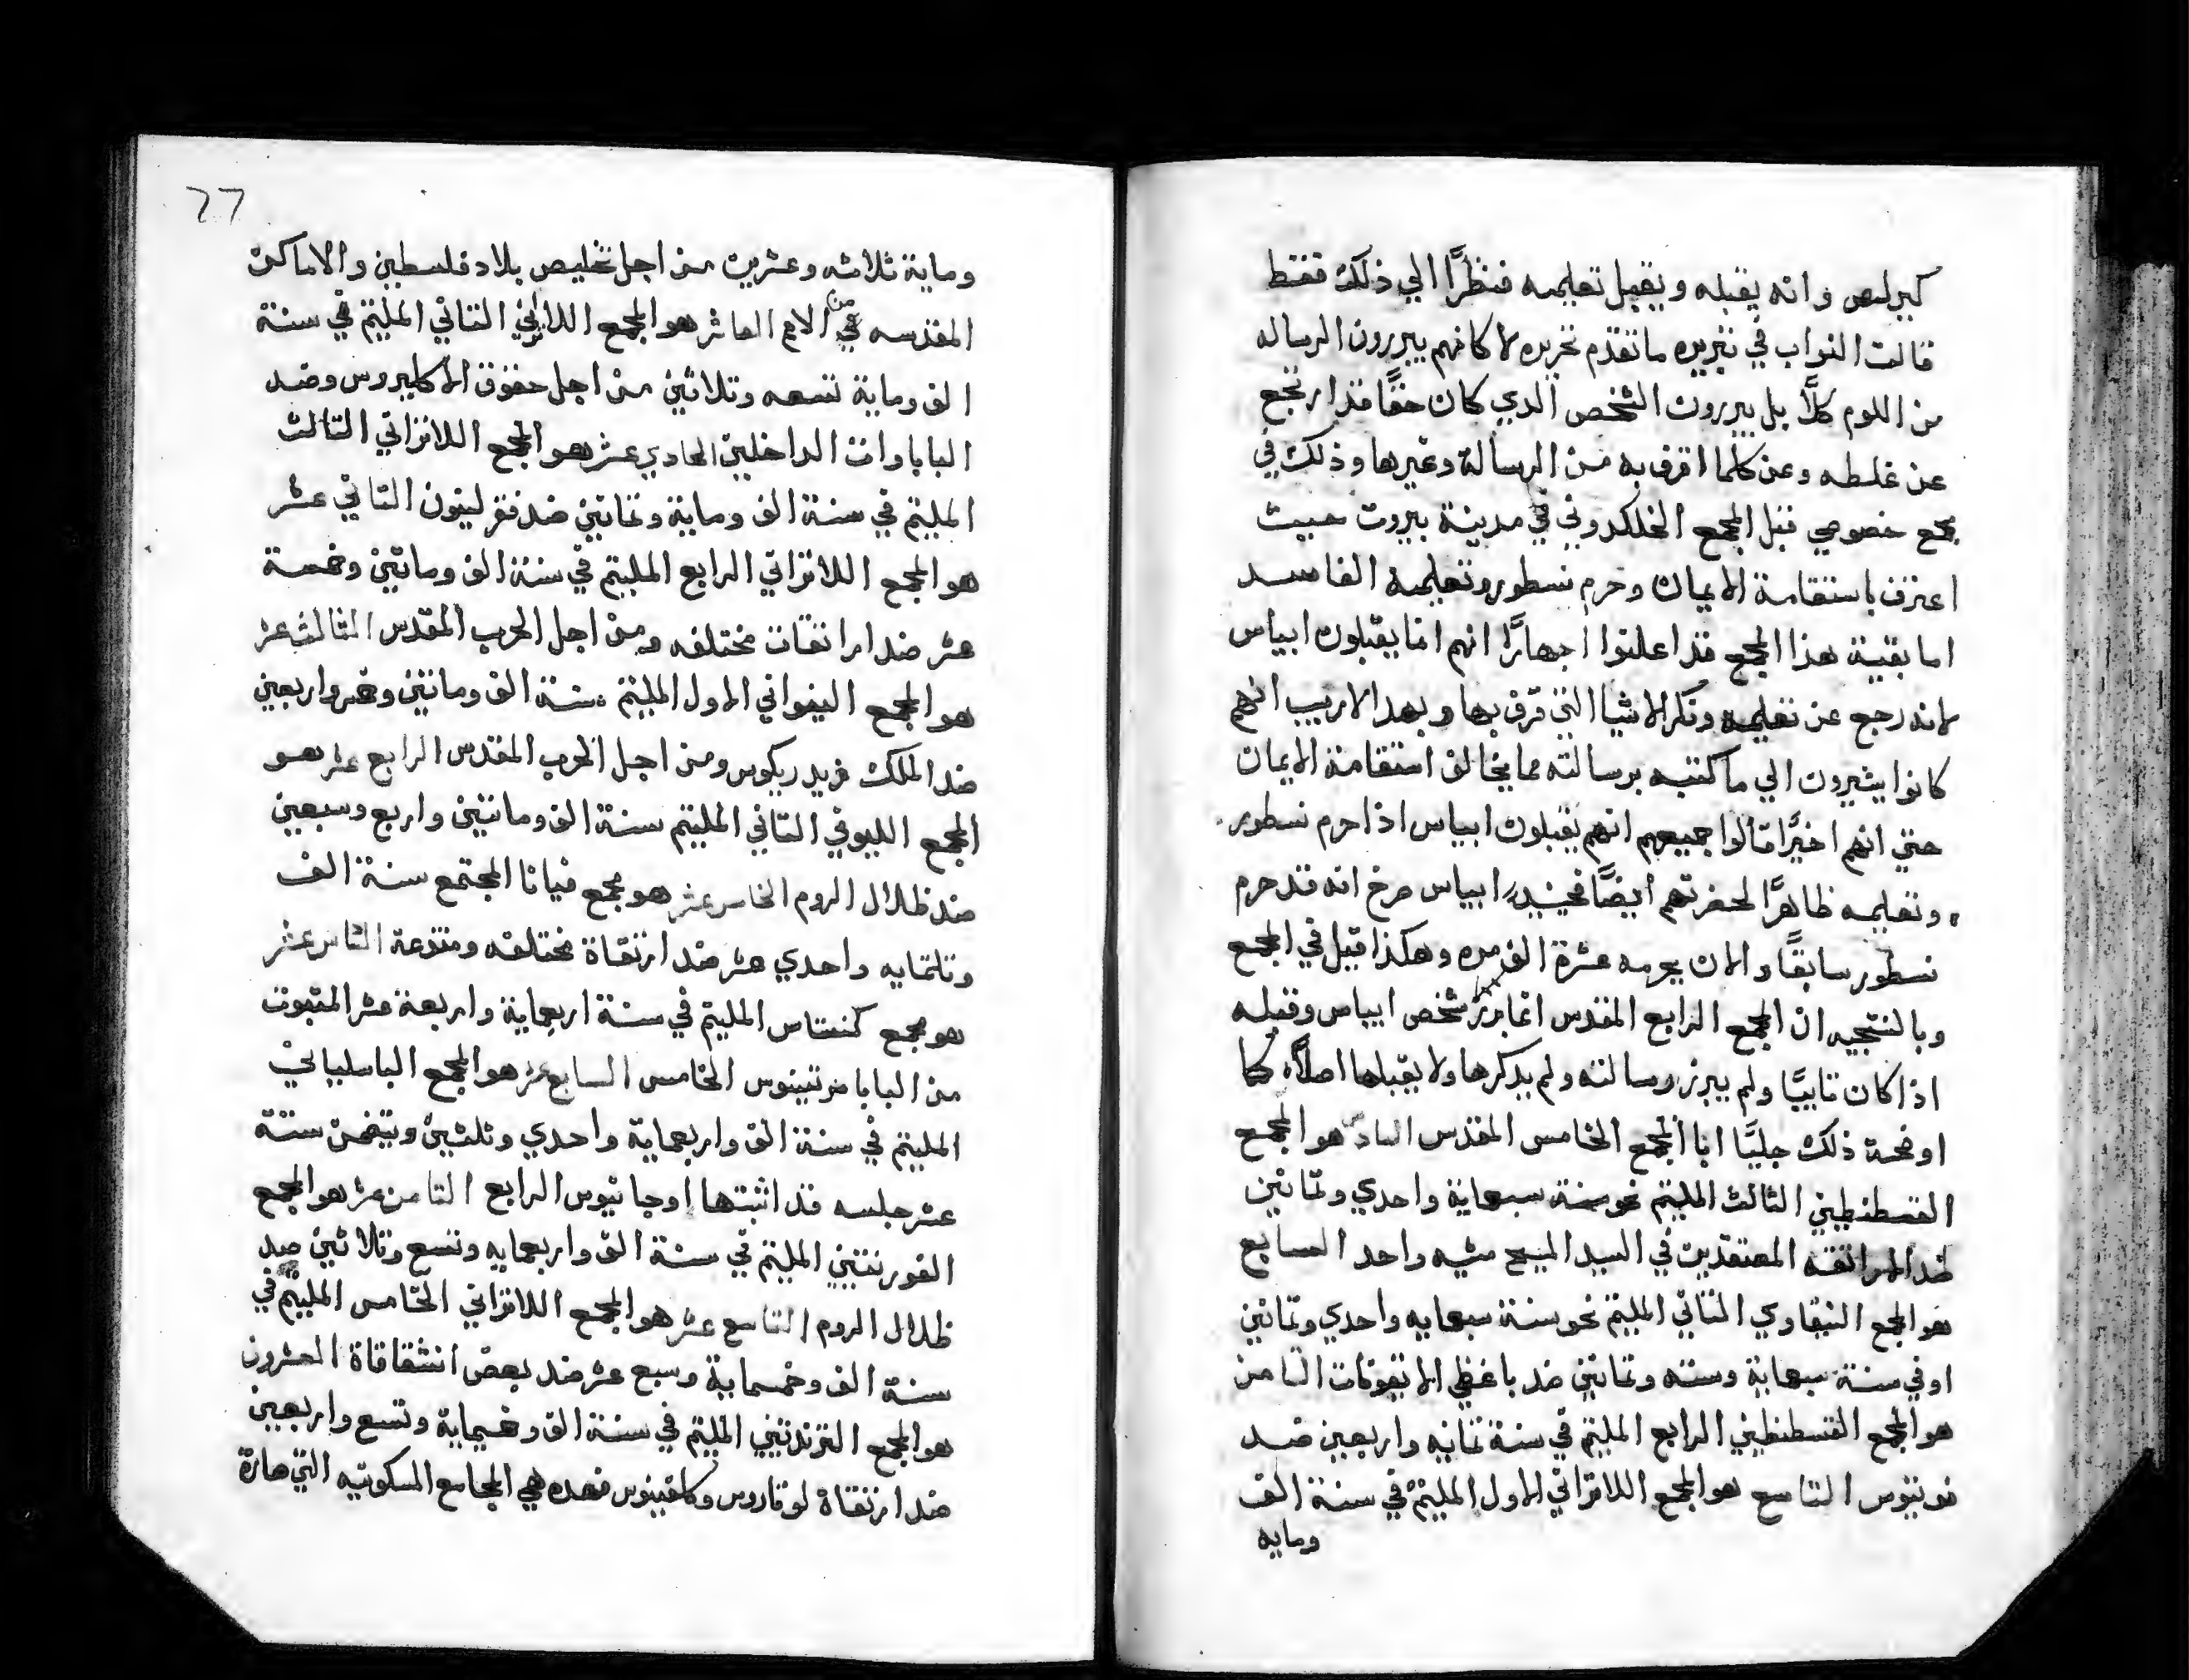 كيرلس وانه يقبله ويقبل تعليمه فنظرًا الي ذلك فقط
قالت النواب في تبريره ما تقدم تحريره لا كانهم يبررون الرساله
من اللوم كلًّا بل يبررون الشخص الدي كان حقًا قد ارتجع
عن غلطه وعن كلما اقرف به من الرسالة وغيرها وذلك في
مجمع خصوصي قبل المجمع الخلكدوني في مدينة بيروت حيث
اعترف باستقامة الايمان وحرم نسطور وتعليمه الفاسد
اما بقية هذا المجمع قد اعلنوا اجهارًا انهم انما يقبلون ايباس
لانه رجع عن تعليمه ونكر الاشيا التي قرف بها وبهدا لاريب انهم
كانوا يشيرون الي ما كتبه برسالته مما يخالف استقامة الايمان
حتي انهم اخيرًا قالوا جميعهم انهم يقبلون ايباس اذا حرم نسطور
وتعليمه ظاهرًا لحضرتهم ايضًا فحينيدٍ ايباس صرخ انه قد حرم
نسطور سابقًا والان يحرمه عشرة الف مره وهكذا قبل في المجمع
وبالنتيجه ان المجمع الرابع المقدس انما برر شخص ايباس وقبله
اذا كان تايبًا ولم يبرر رسالته ولم يدكرها ولا يقبلها اصلًا كما
اوضحة ذلك جليًا ابا المجمع الخامس المقدس السادس هو المجمع
القسطنطيني الثالث الملتيم نحو سنة سبعماية واحدي وتمانين
ضد الهراتقه المعتقدين في السيد المسيح مشيه واحد السابع
هو المجمع النيقاوي التاني الملتيم نحو سنة سبعمايه واحدي وتمانين
اوفي سنة سبعماية وسته وتمانين ضد باغظي الايقونات التامن
هو المجمع القسطنطيني الرابع الملتيم في سنة تمانيه واربعين ضد
فوتيوس التاسع هو المجمع اللاتراني الاول الملتيم في سنة الف
ومايه
27
وماية ثلاثه وعشرين من اجل تخليص بلاد فلسطين والاماكن
المقدسه من الامم العاشر هو المجمع اللاتراني التاني الملتيم في سنة
الف وماية تسعه وتلاتين من اجل حقوق الاكليروس وضد
الباباوات الداخلين الحادي عشر هو المجمع اللاتراني التالت
الملتيم في سنة الف وماية وتمانين ضد فقر ليون التاني عشر
هو المجمع اللاتراني الرابع الملتيم في سنة الف وماتين وخمسة
عشر ضد اراتقات مختلفه ومن اجل الحرب المقدس الثالث عشر
هو المجمع الليواني الاول الملتيم سنة الف وماتين وخمس واربعين
ضد الملك فريدريكوس ومن اجل الحرب المقدس الرابع عشر هو
المجمع الليوني التاني الملتيم سنة الف وماتين واربع وسبعين
ضد ظلال الروم الخامس عشر هو مجمع فيانا المجتمع سنة الف
وتلتمايه واحدي عشر ضد ارتقاة مختلفه ومتنوعة السادس عشر
هو مجمع كنستاس الملتيم في سنة اربعماية واربعة عشر المتبوت
من البابا مرتينوس الخامس السابع عشر هو المجمع الباسلياني
الملتيم في سنة الف واربعماية واحدي وتلتين ويتضمن ستة
عشر جلسه قد اثبتها اوجانيوس الرابع التامن عشر هو المجمع
الفورنتيني الملتيم في سنة الف واربعمايه وتسع وتلاتين ضد
ظلال الروم التاسع عشر هو المجمع اللاتراني الخامس الملتيم في
سنة الف وخمسماية وسبع عشر ضد بعض انشقاقاة العشرون
هو المجمع التريدنتيني الملتيم في سنة الف وخمسماية وتسع واربعين
ضد ارتقاة لوتاروس وكالفينوس فهده هي المجامع المسكونيه التي صارة